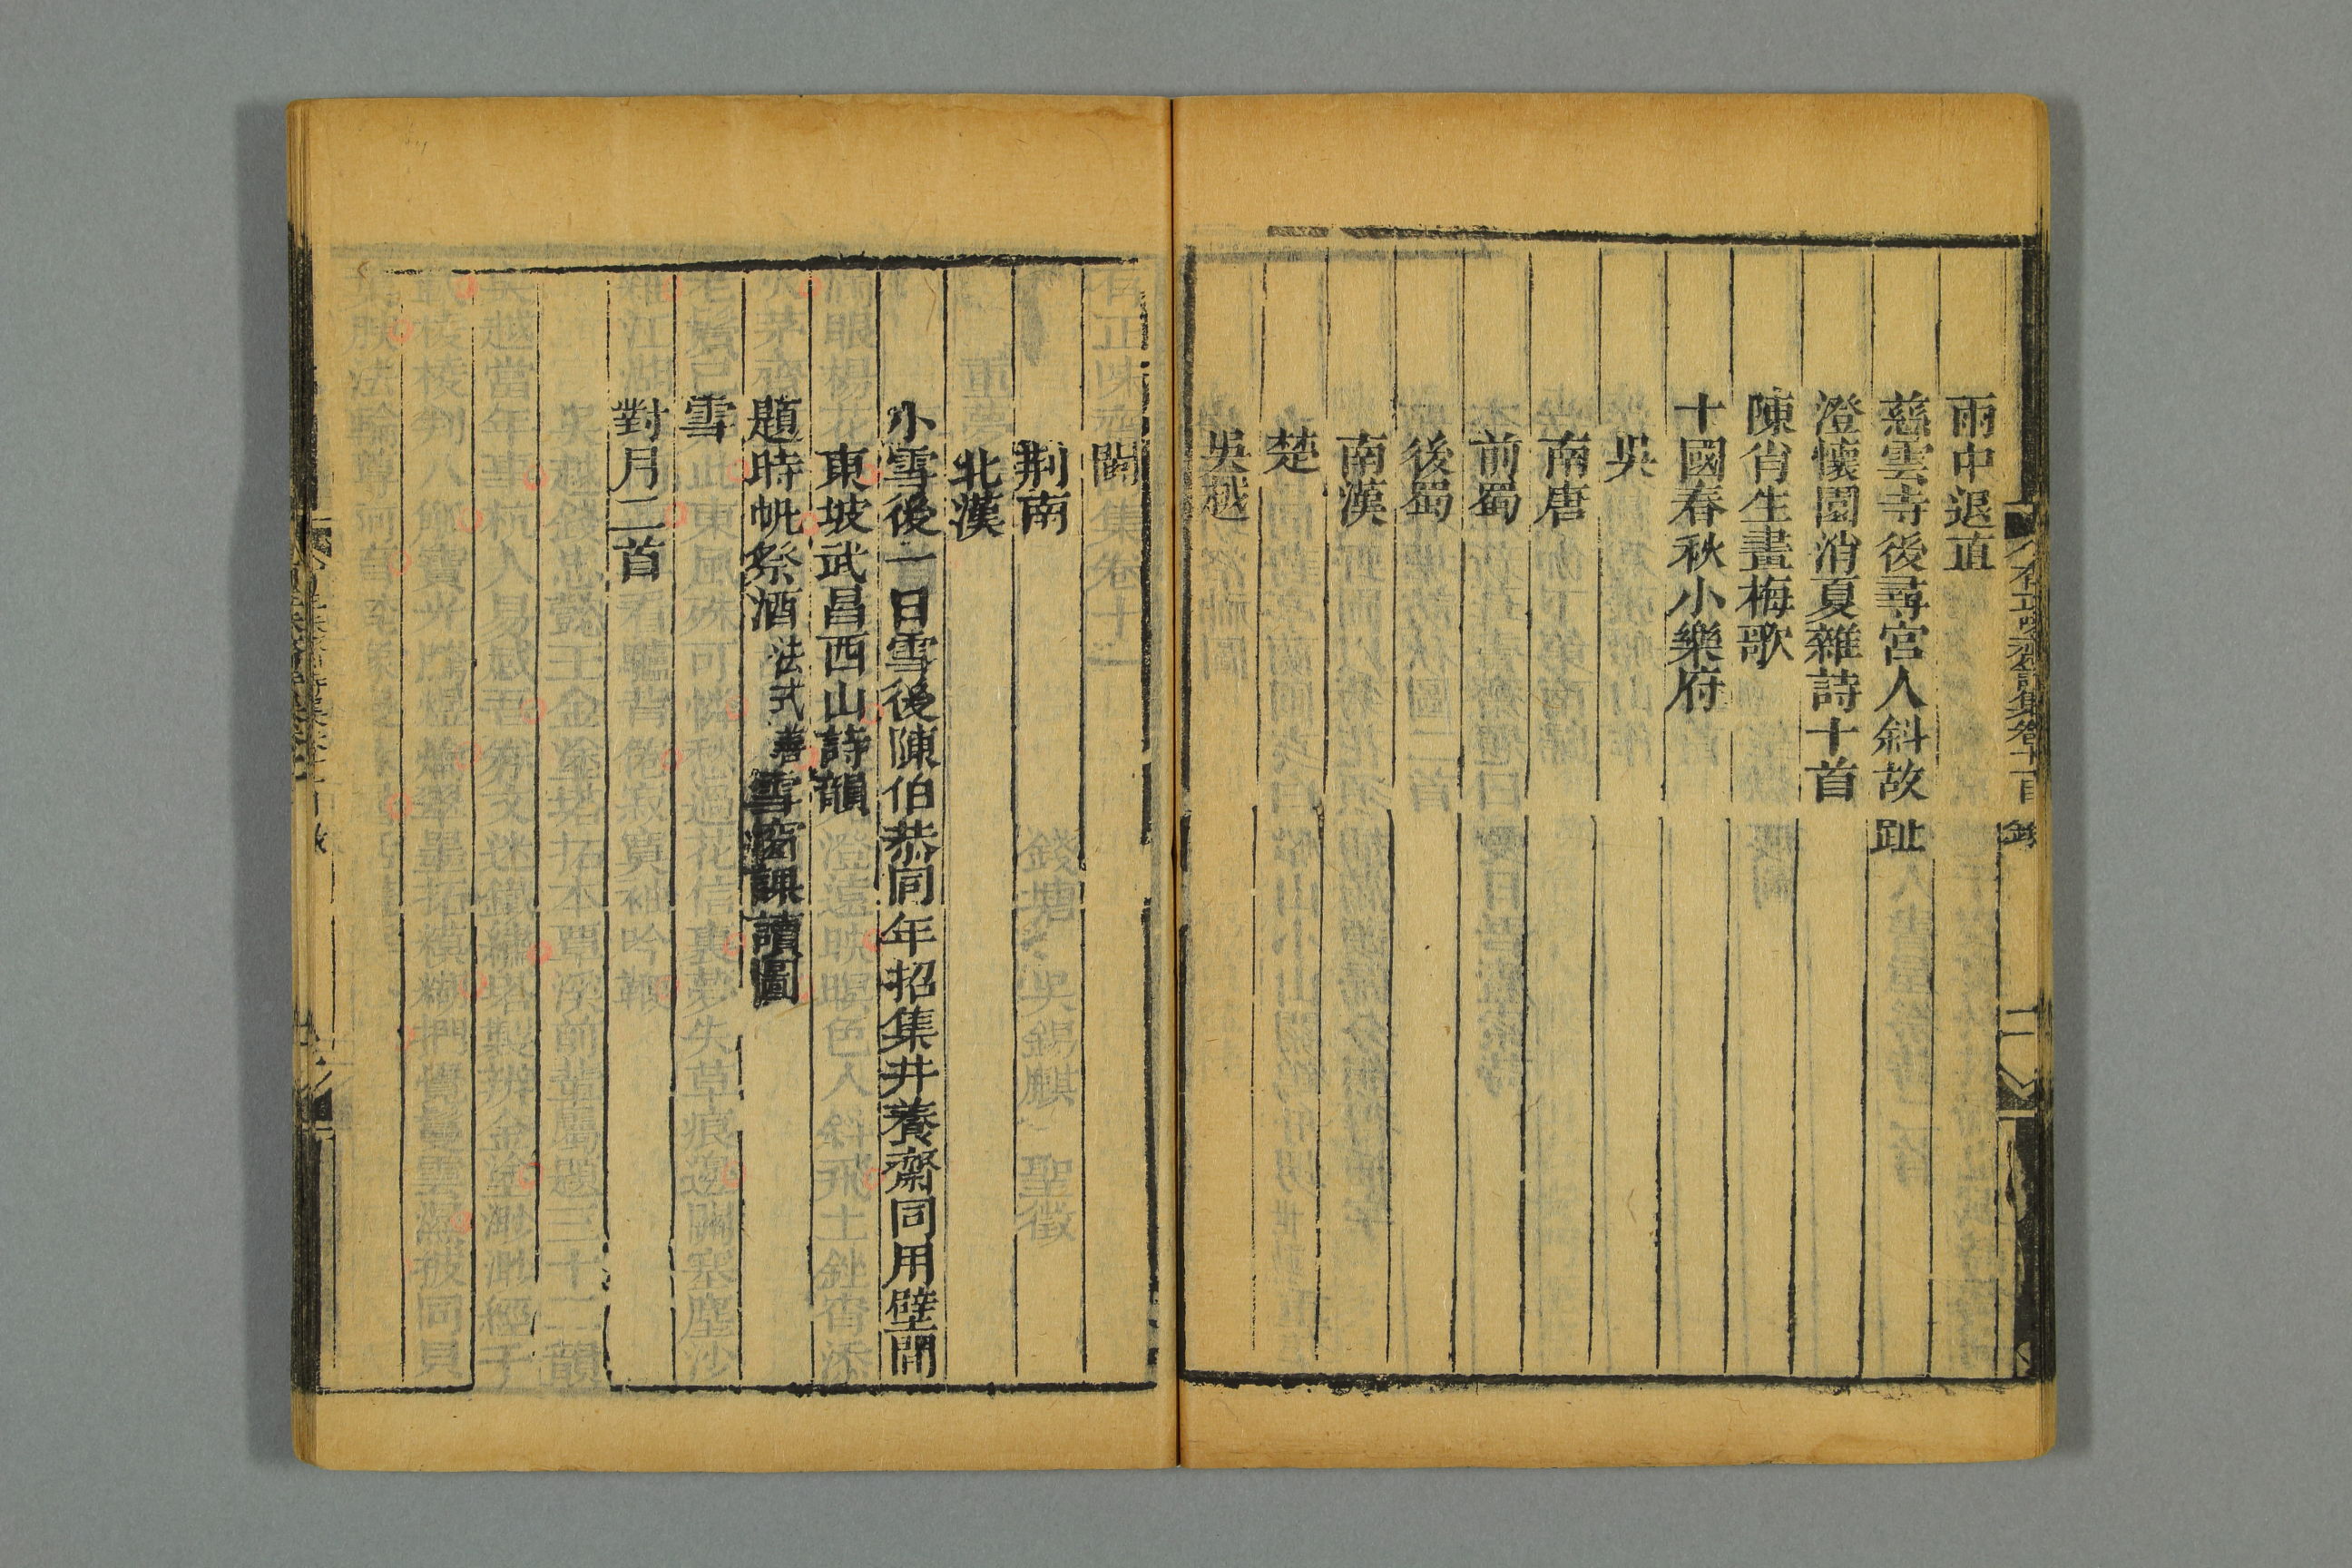 雨中退直
慈雲寺後尋宮人斜故趾
澄懷園消夏雜詩十首
陳肖生畫梅歌
十國春秋小樂府
吳
南唐
前蜀
後蜀
南漢
楚
吳越
閩
荆南
北漢
小雪後一日雪後陳伯恭同年招集井養齋同用壁間
東坡武昌西山詩韻
題時帆祭酒法式善雪窗課讀圖
雪
對月二首